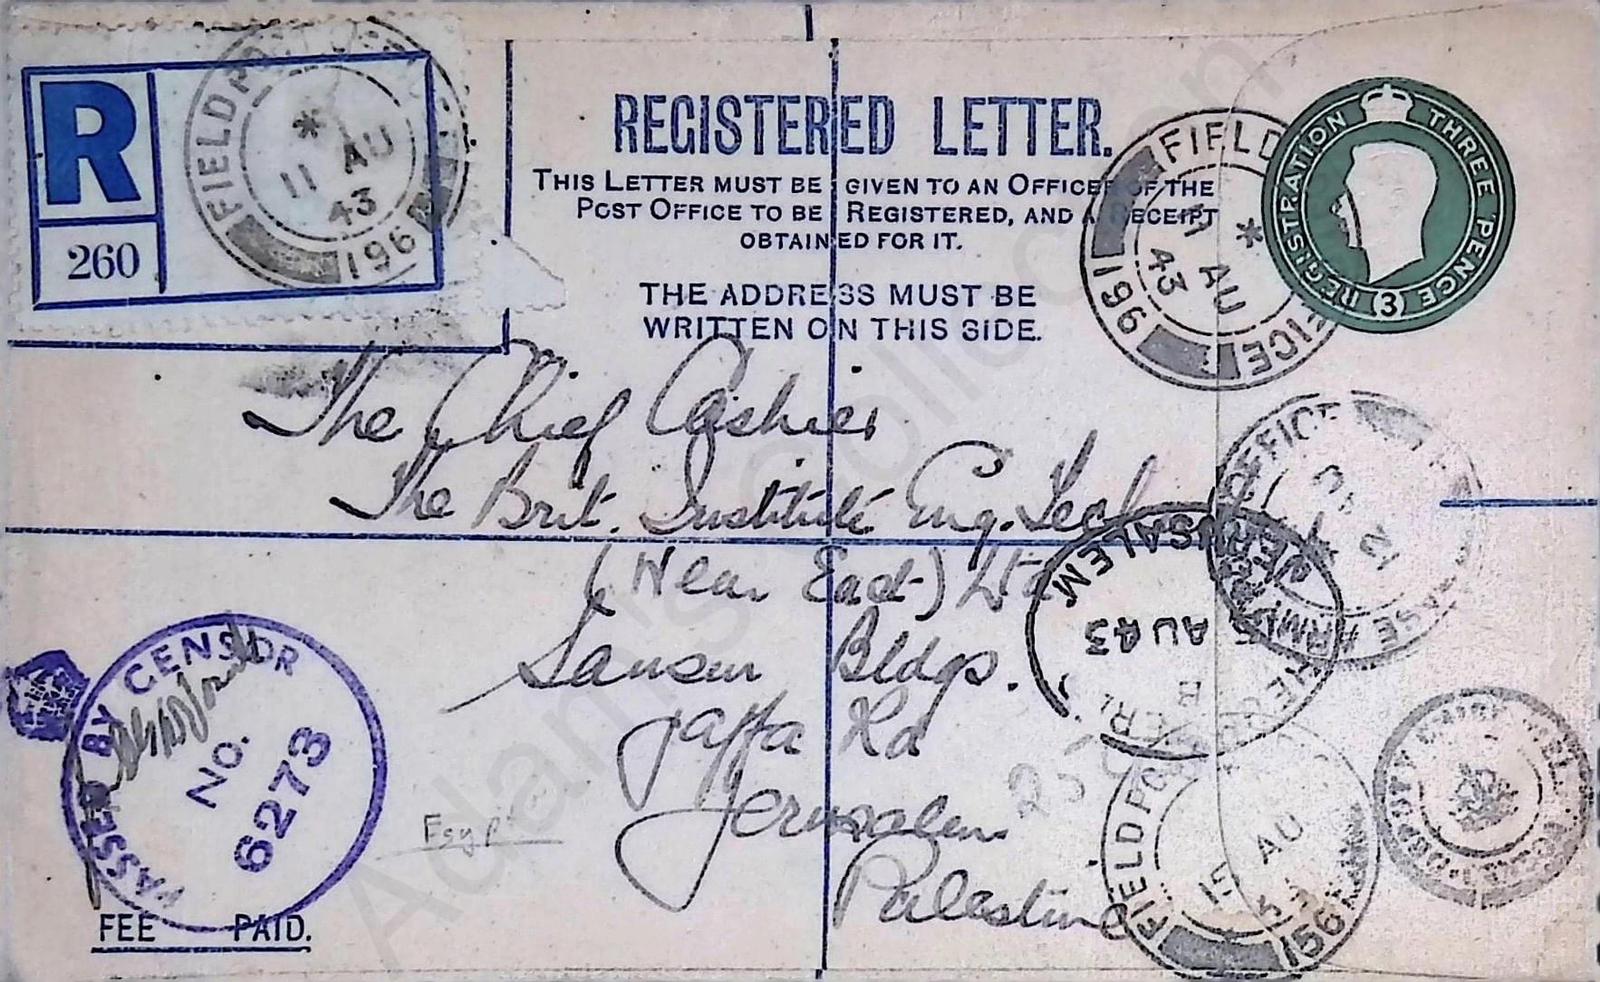 R
260
FIELD POST OFFICE
*
11 AU
43
196
REGISTERED LETTER.
THIS LETTER MUST BE GIVEN TO AN OFFICER OF THE
POST OFFICE TO BE REGISTERED, AND A RECEIPT
OBTAINED FOR IT.
THE ADDRESS MUST BE
WRITTEN ON THIS SIDE.
FIELD OFFICE
*
11 AU
43
196
REGISTRATION THREE PENCE (3)
The Chief Cashier
The Brit. Institute Eng. Tech
(Near East) Ltd
Sansur Bldgs.
Jaffa Rd
Jerusalem
Palestine
Egypt
PASSED BY CENSOR
No.
6273
FEE PAID.
JERUSALEM
AU 43
FIELD POST
15 AU
156
OFFICE
BASE ARMY